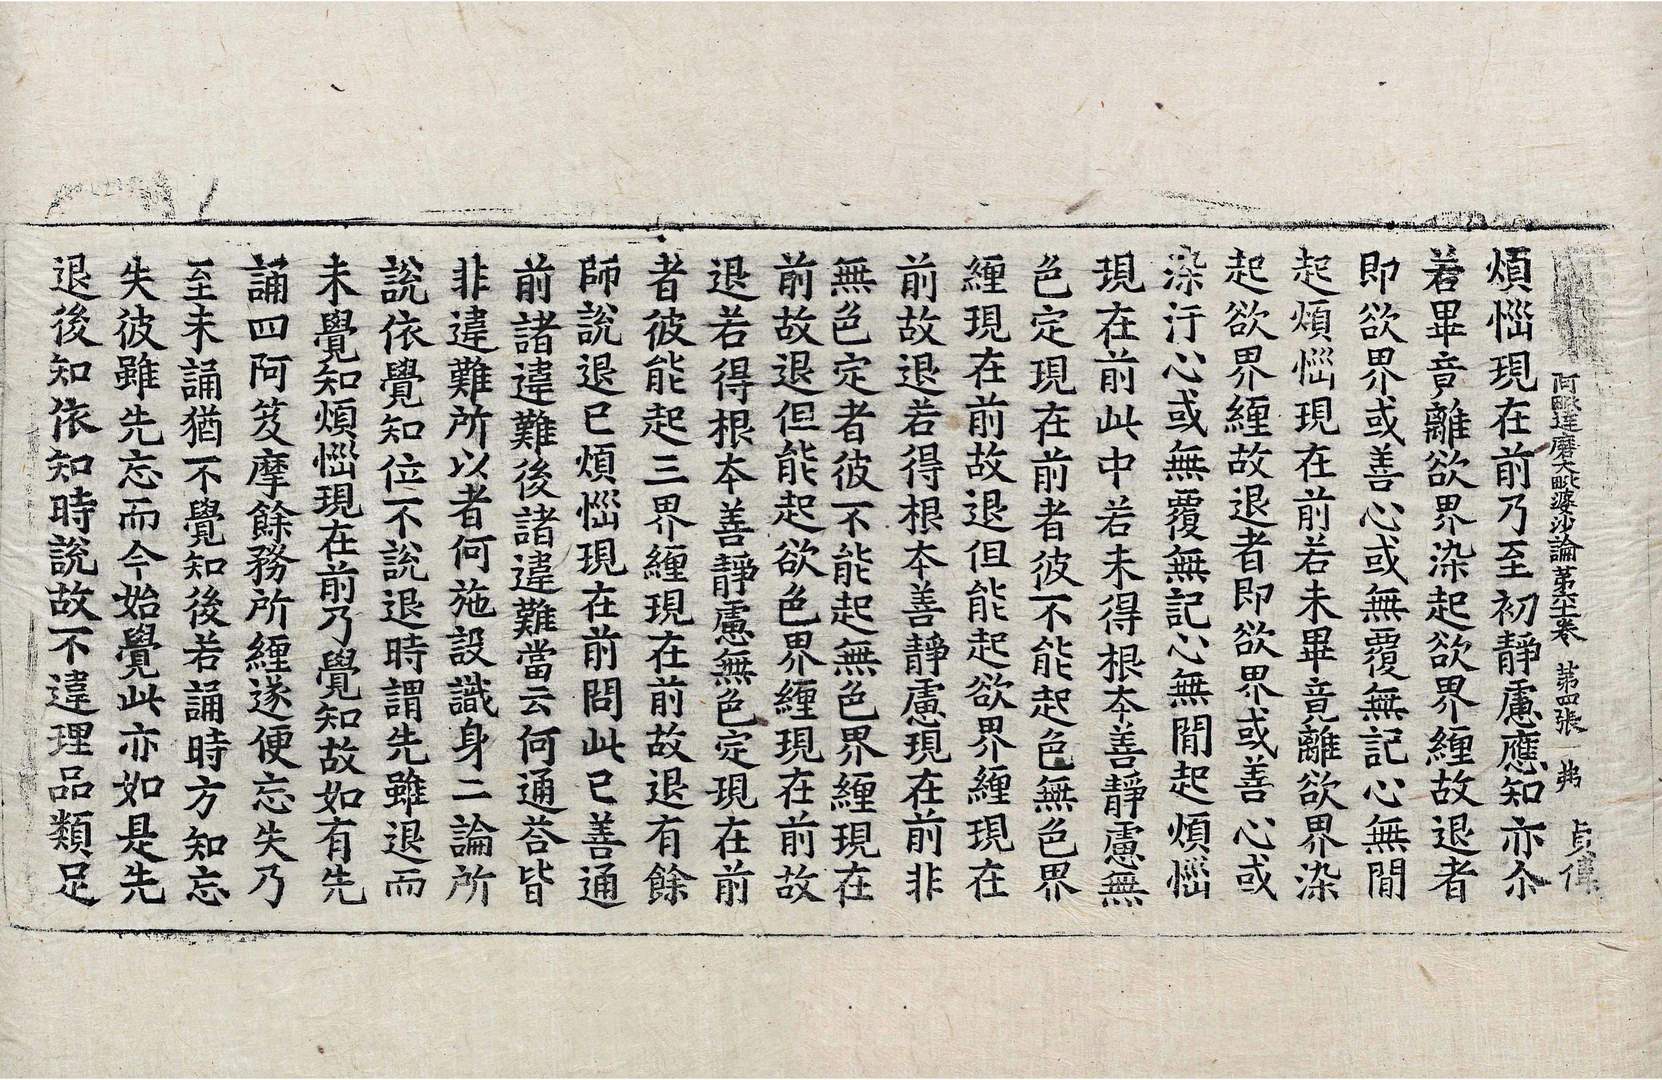 阿毗達磨大毗婆沙論第六十卷 第四張 弗 貞偉
煩惱現在前乃至初靜慮應知亦尒
若畢竟離欲界染起欲界纏故退者
即欲界或善心或無覆無記心無閒
起煩惱現在前若未畢竟離欲界染
起欲界纏故退者即欲界或善心或
染汙心或無覆無記心無閒起煩惱
現在前此中若未得根本善靜慮無
色定現在前者彼不能起色無色界
纏現在前故退但能起欲界纏現在
前故退若得根本善靜慮現在前非
無色定者彼不能起無色界纏現在
前故退但能起欲色界纏現在前故
退若得根本善靜慮無色定現在前
者彼能起三界纏現在前故退有餘
師說退已煩惱現在前問此已善通
前諸違難後諸違難當云何通荅皆
非違難所以者何施設識身二論所
說依覺知位不說退時謂先雖退而
未覺知煩惱現在前乃覺知故如有先
誦四阿笈摩餘務所纏遂便忘失乃
至未誦猶不覺知後若誦時方知忘
失彼雖先忘而今始覺此亦如是先
退後知依知時說故不違理品類足